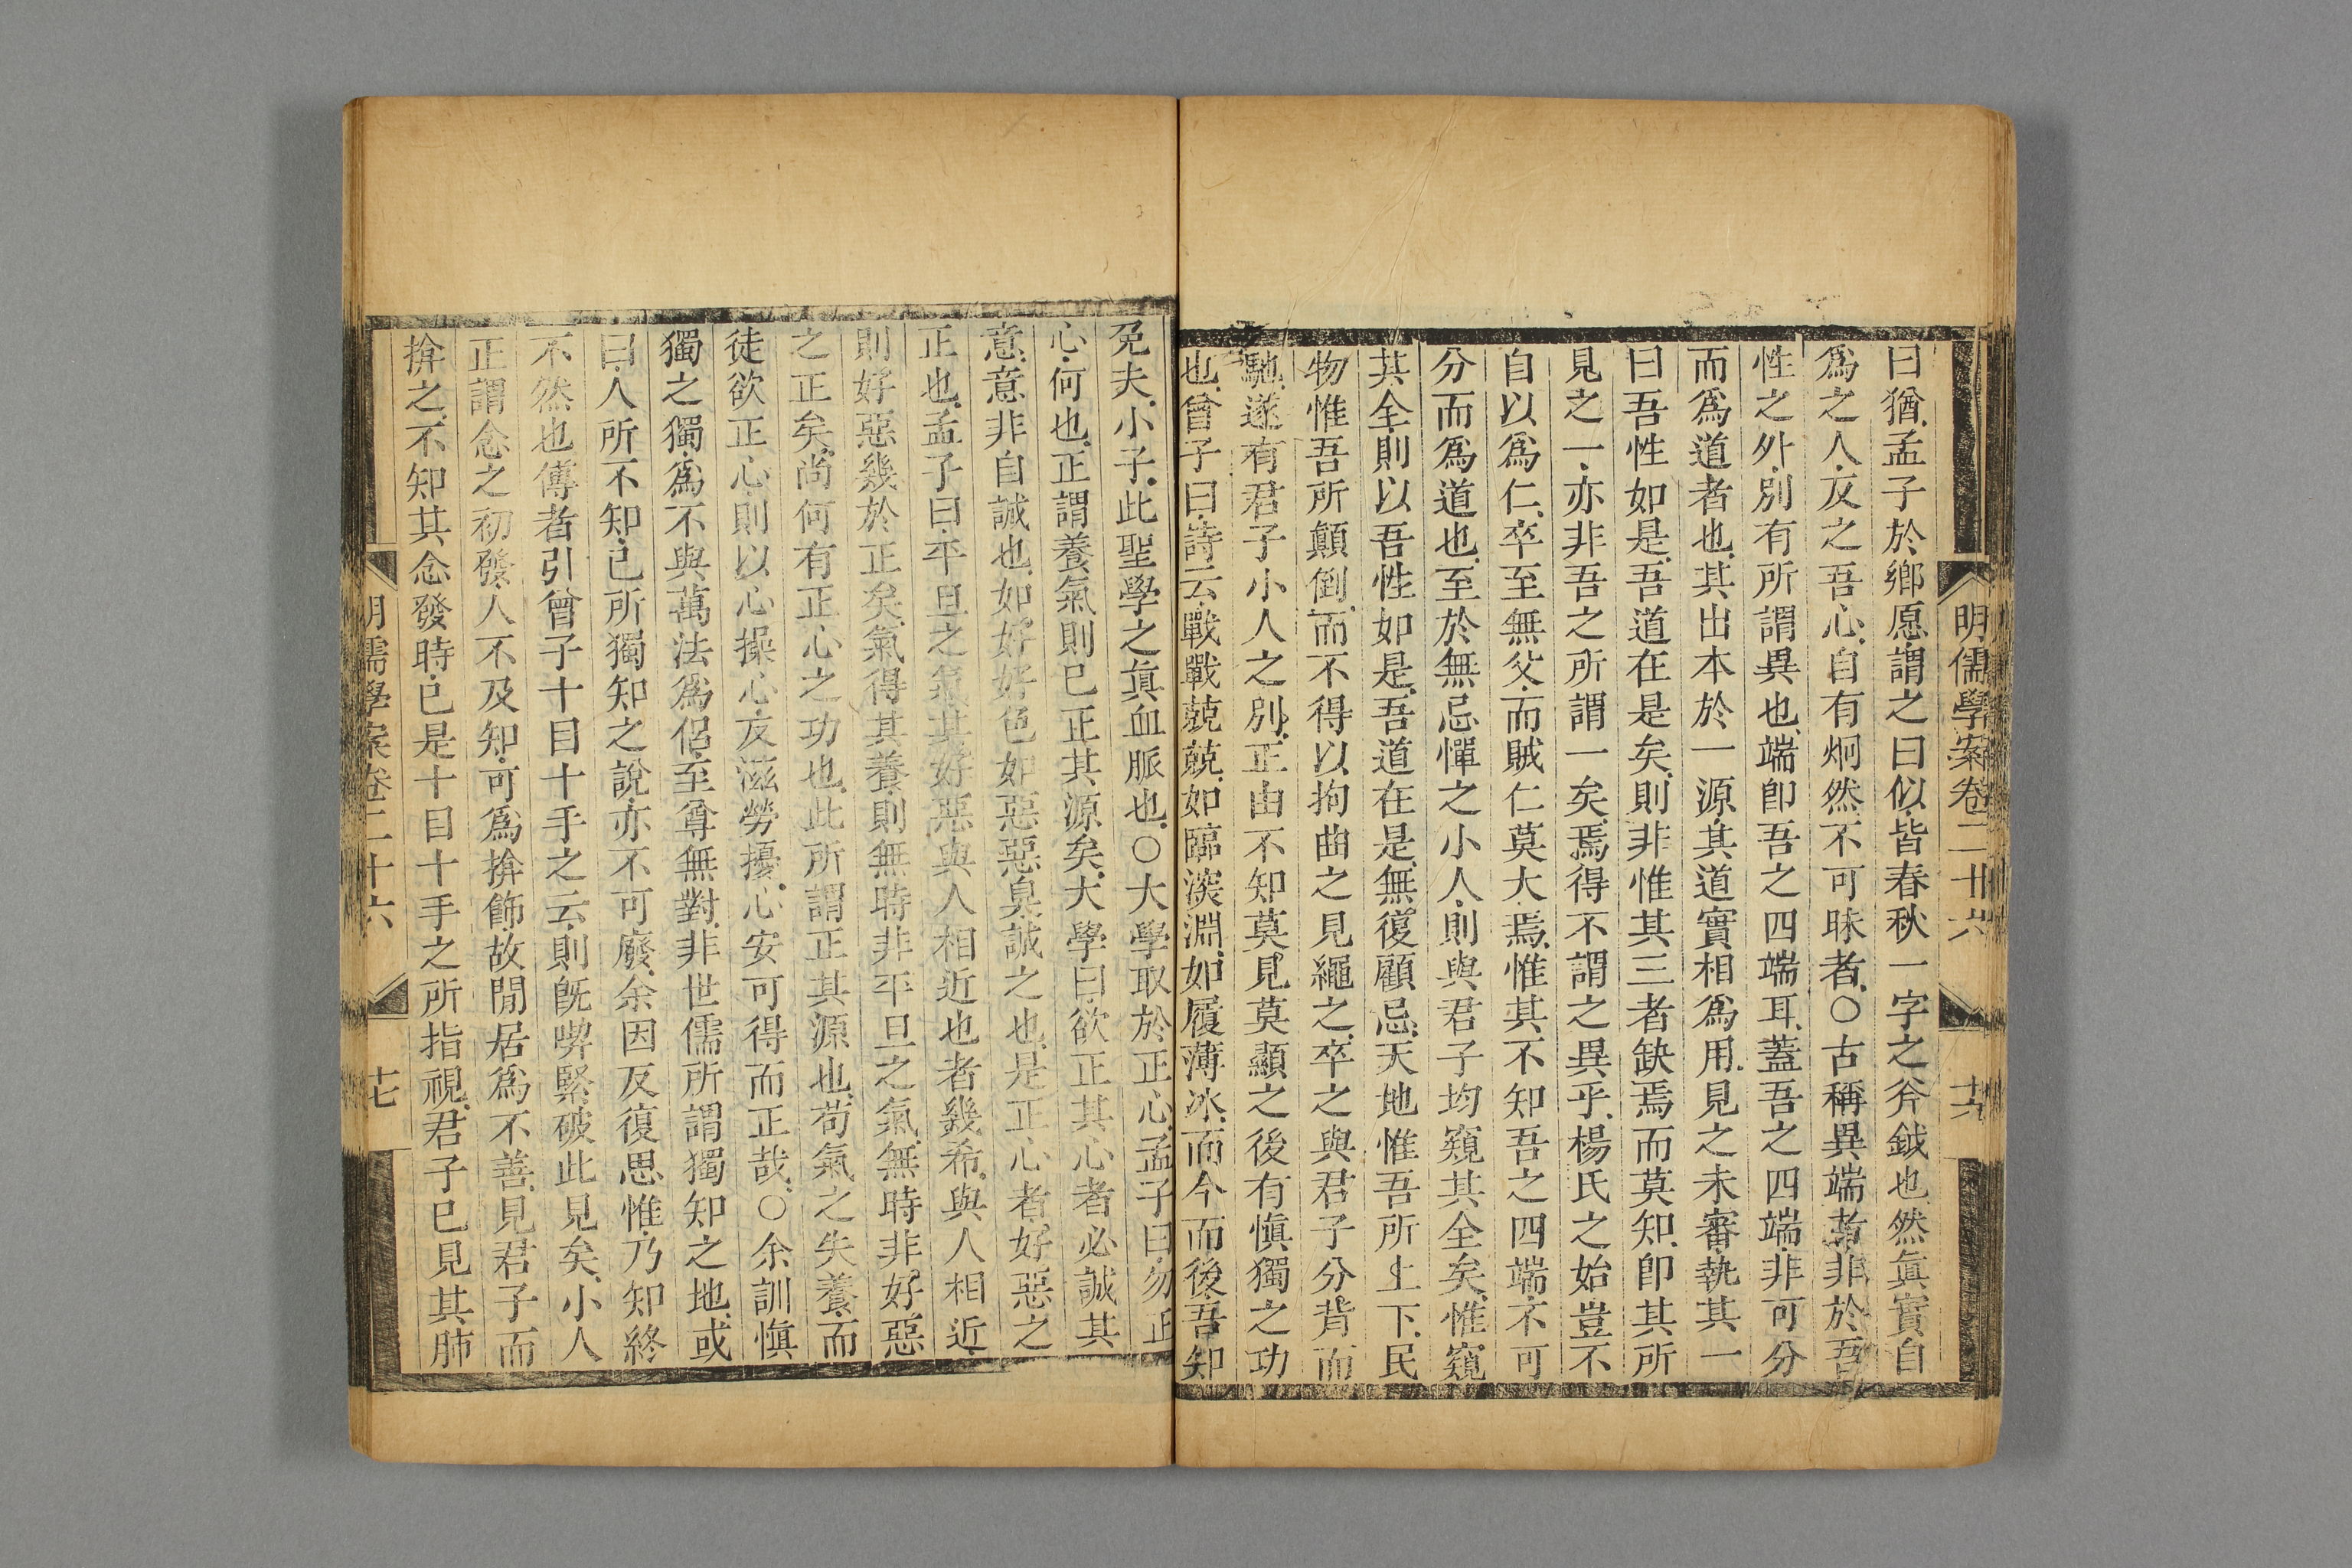 明儒學案卷二十六
十六
曰猶孟子於鄉愿謂之曰似皆春秋一字之斧鉞也然眞實自
爲之人反之吾心自有炯然不可昧者○古稱異端者非於吾
性之外別有所謂異也端卽吾之四端耳蓋吾之四端非可分
而爲道者也其出本於一源其道實相爲用見之未審執其一
曰吾性如是吾道在是矣則非惟其三者缺焉而莫知卽其所
見之一亦非吾之所謂一矣焉得不謂之異乎楊氏之始豈不
自以爲仁卒至無父而賊仁莫大焉惟其不知吾之四端不可
分而爲道也至於無忌憚之小人則與君子均窺其全矣惟窺
其全則以吾性如是吾道在是無復顧忌天地惟吾所上下民
物惟吾所顛倒而不得以拘曲之見繩之卒之與君子分背而
馳遂有君子小人之別正由不知莫見莫顯之後有愼獨之功
也曾子曰詩云戰戰兢兢如臨深淵如履薄冰而今而後吾知
免夫小子此聖學之眞血脈也○大學取於正心孟子曰勿正
心何也正謂養氣則已正其源矣大學曰欲正其心者必誠其
意意非自誠也如好好色如惡惡臭誠之也是正心者好惡之
正也孟子曰平旦之氣其好惡與人相近也者幾希與人相近
則好惡幾於正矣氣得其養則無時非平旦之氣無時非好惡
之正矣尚何有正心之功也此所謂正其源也苟氣之失養而
徒欲正心則以心操心反滋勞擾心安可得而正哉○余訓愼
獨之獨爲不與萬法爲侶至尊無對非世儒所謂獨知之地或
曰人所不知己所獨知之說亦不可廢余因反復思惟乃知終
不然也傳者引曾子十目十手之云則旣喫緊破此見矣小人
正謂念之初發人不及知可爲揜飾故閒居爲不善見君子而
揜之不知其念發時已是十目十手之所指視君子已見其肺
明儒學案卷二十六
十七